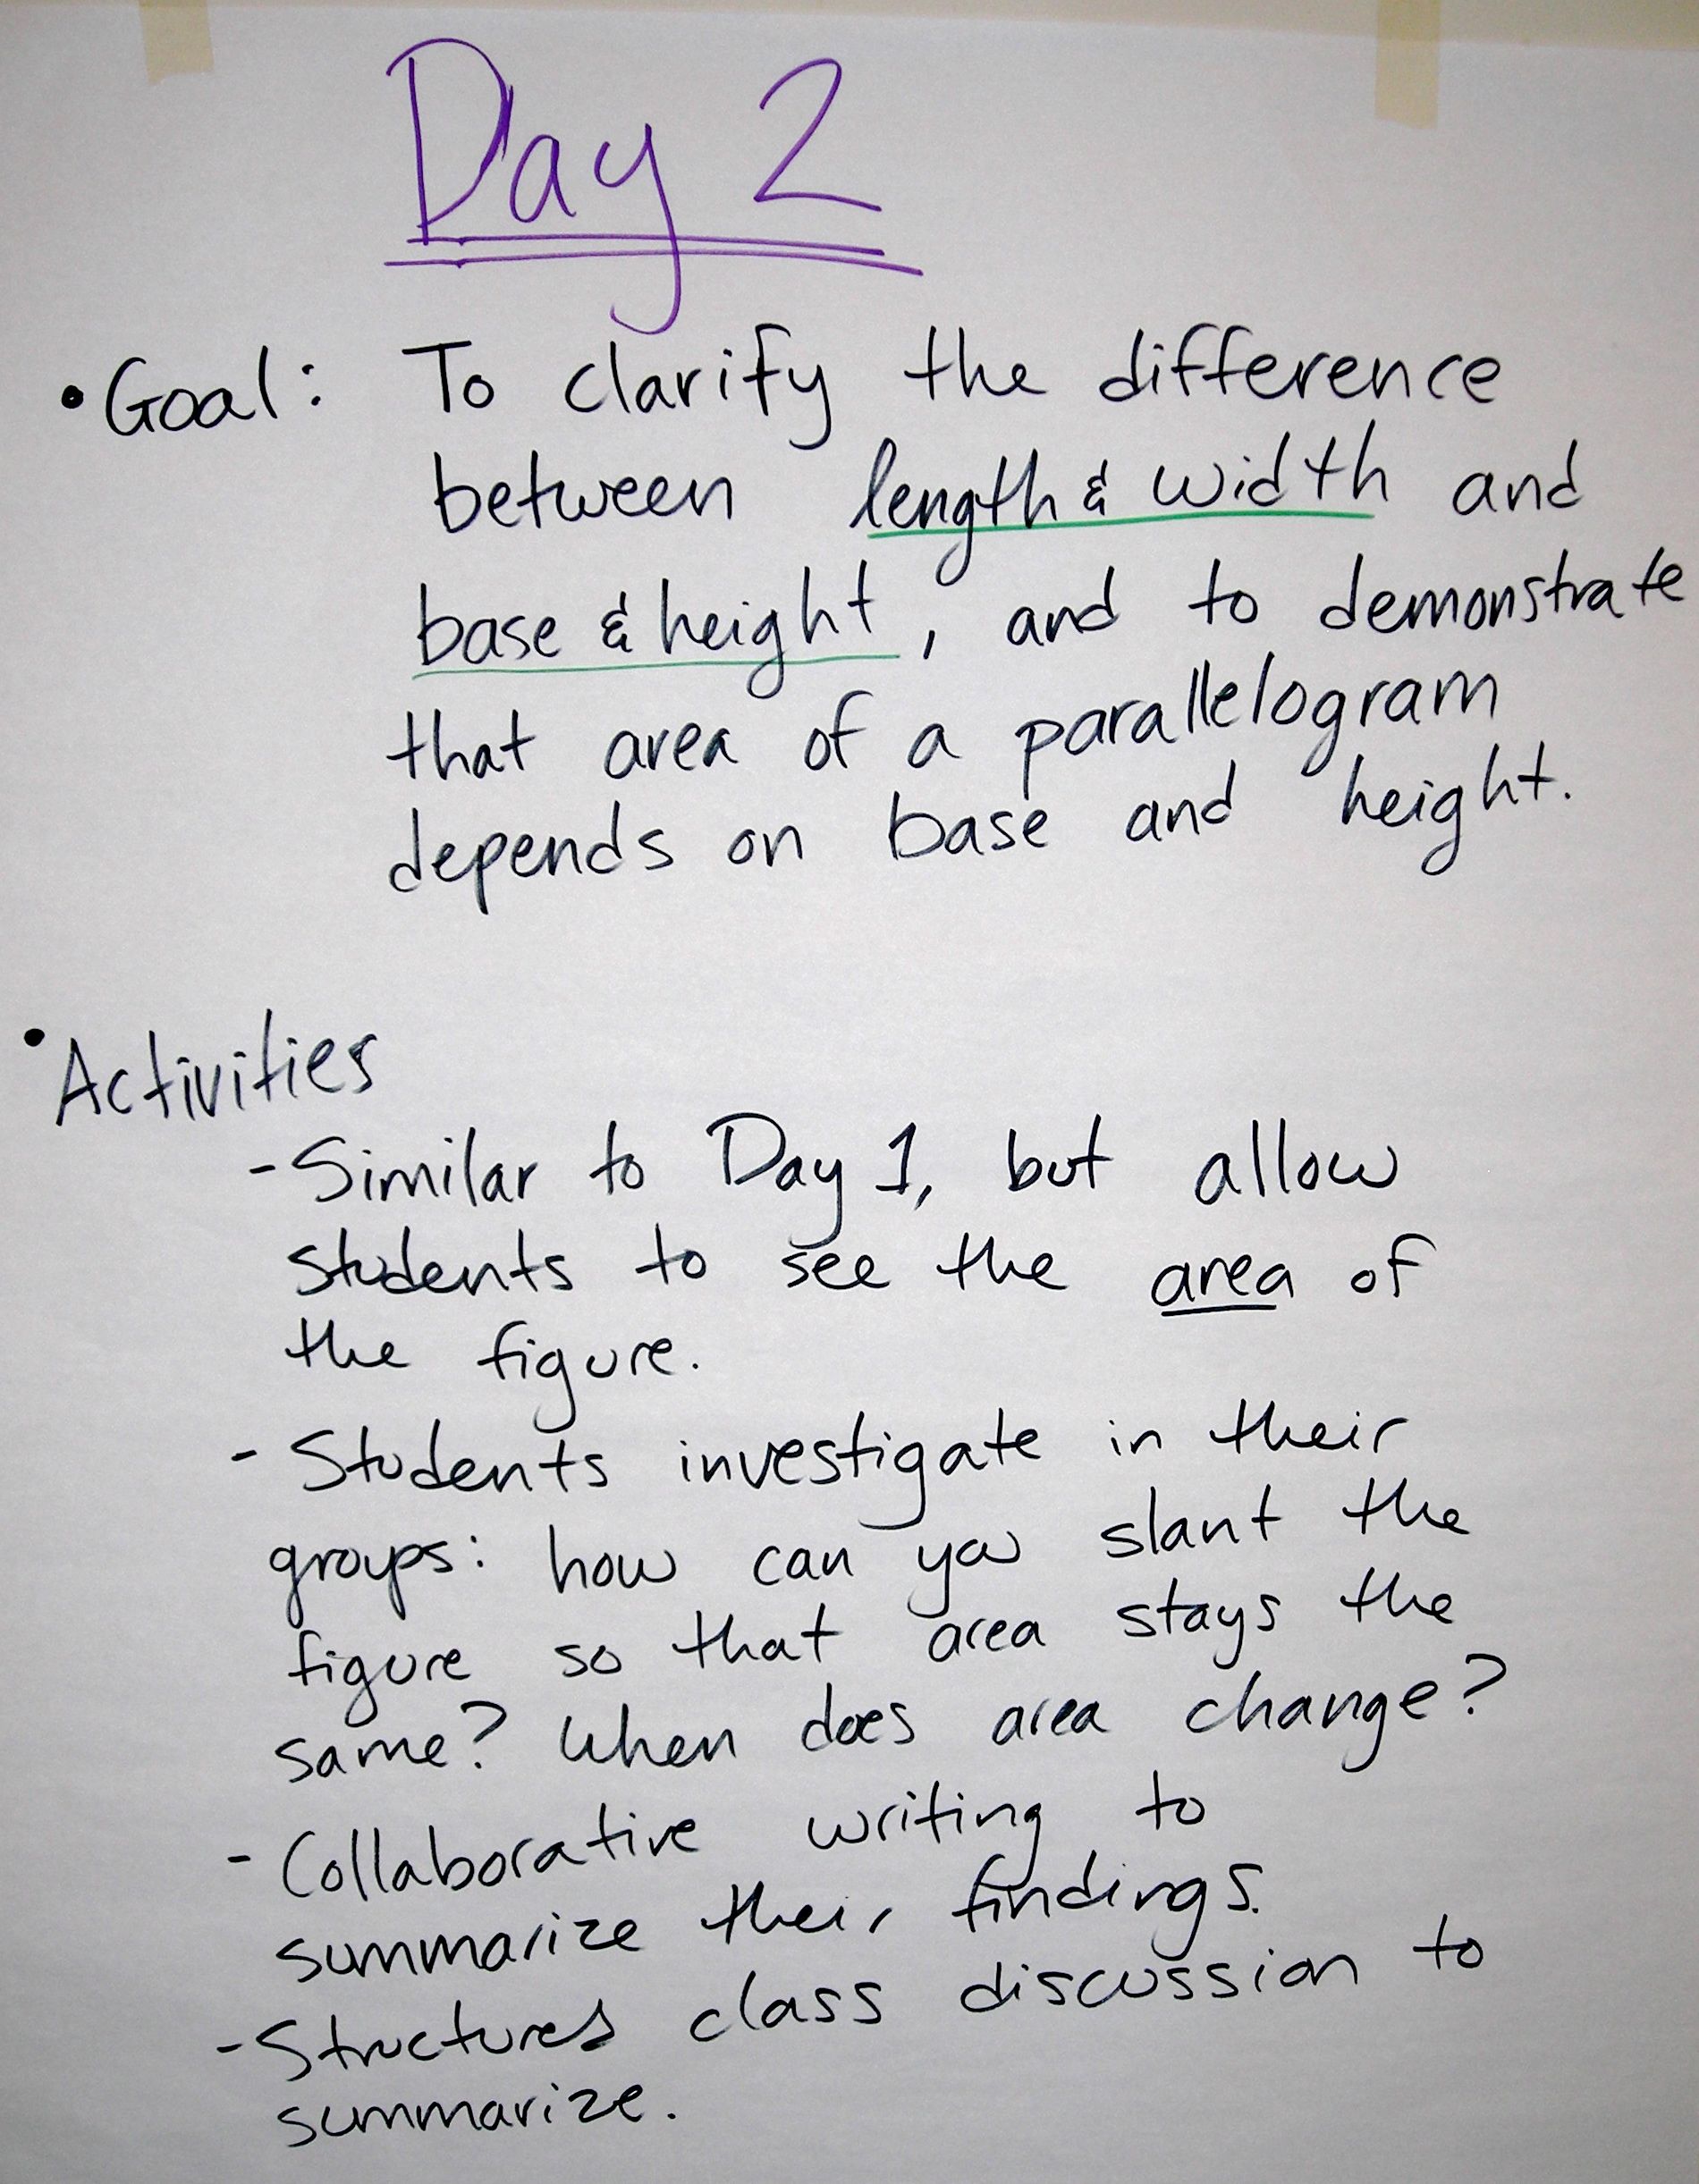 Day 2
• Goal: To clarify the difference
between length & width and
base & height, and to demonstrate
that area of a parallelogram
depends on base and height.
• Activities
- Similar to Day 1, but allow
students to see the area of
the figure.
- Students investigate in their
groups: how can you slant the
figure so that area stays the
same? When does area change?
- Collaborative writing to
summarize their findings.
- Structured class discussion to
summarize.